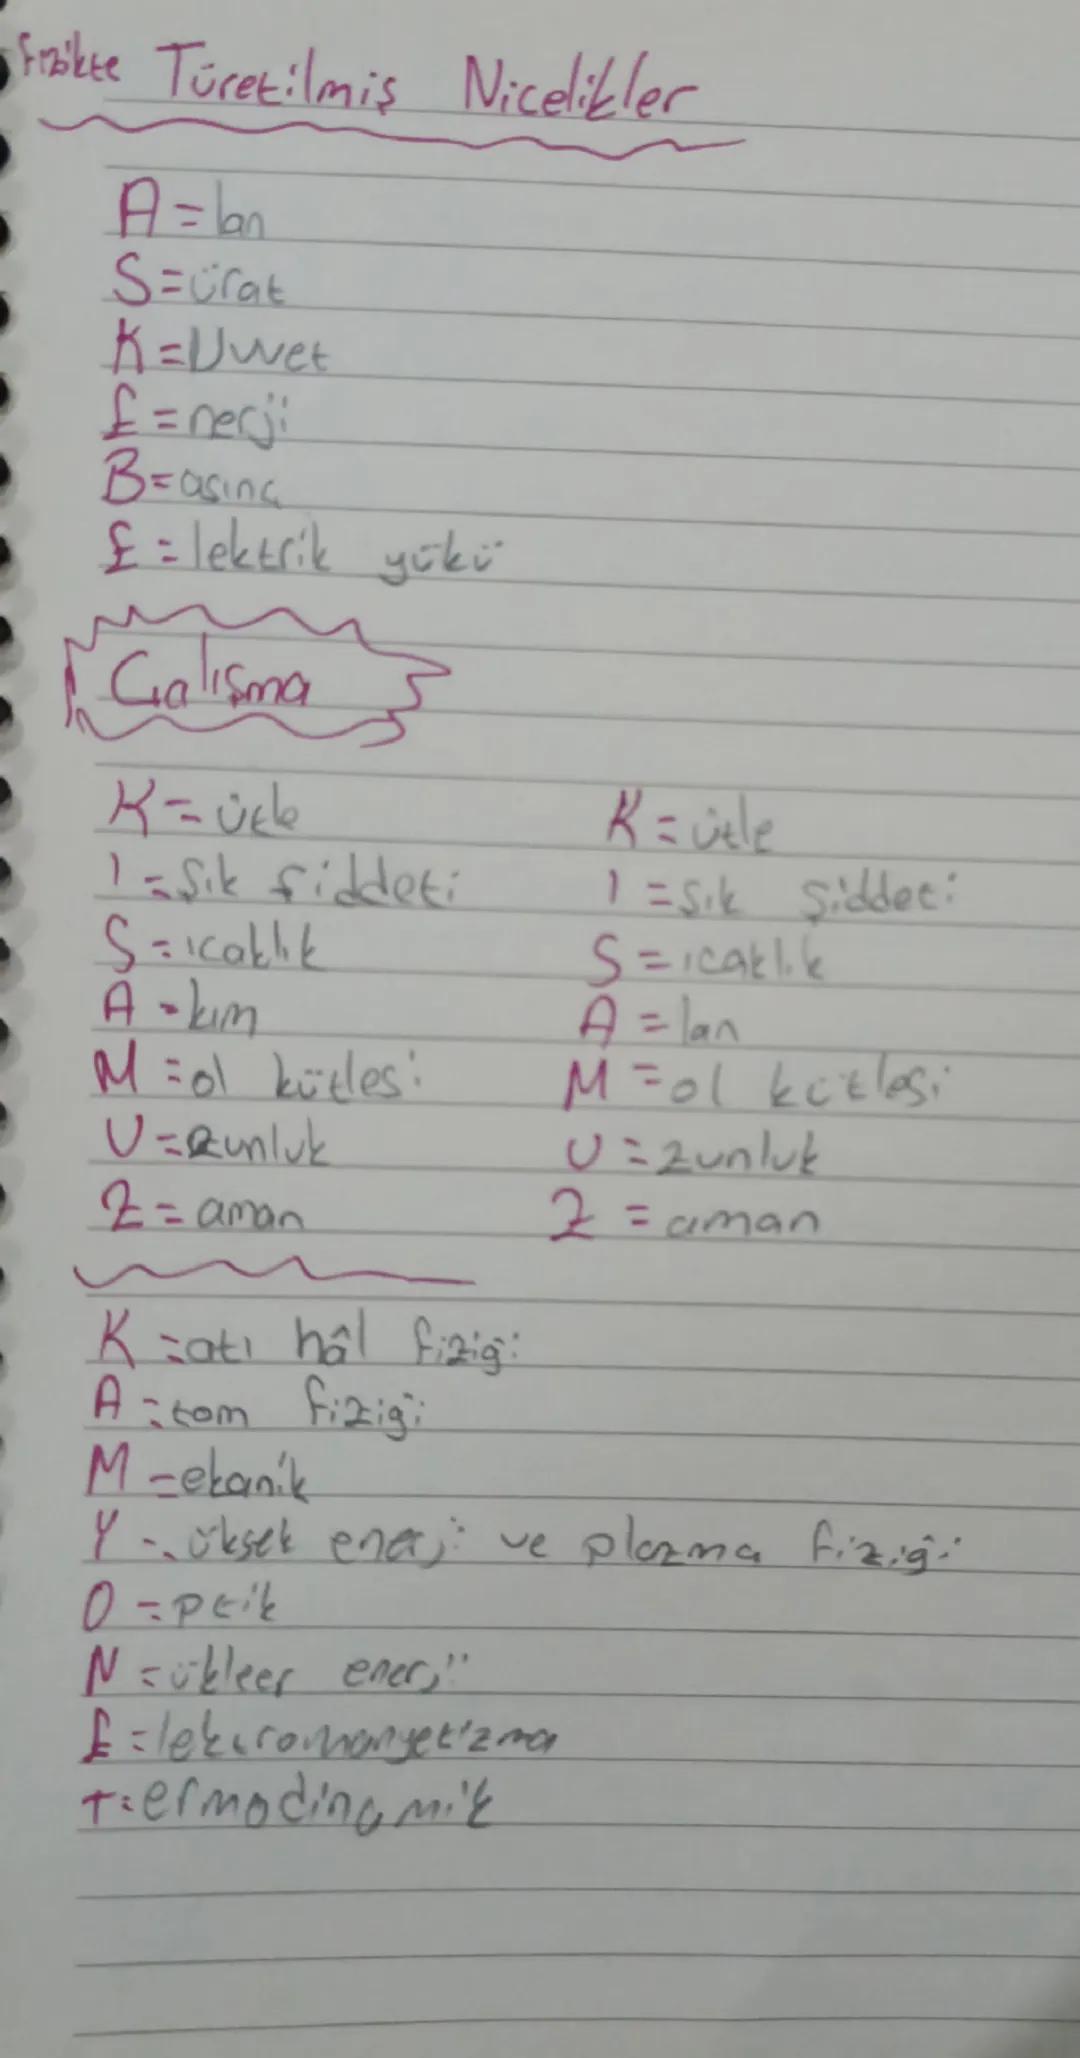 Fizikte Türetilmiş Nicelikler
A = lan
S = ürat
K = Uvvet
E = nerji
B = asınç
E = lektrik yükü
Çalışma
K = ütle
I = şık şiddeti
S = ıcaklık
A = kım
M = ol kütlesi
U = zunluk
Z = aman
K = ütle
I = şık şiddeti
S = ıcaklık
A = lan
M = ol kütlesi
U = zunluk
Z = aman
K = atı hâl fiziği
A = tom fiziği
M = ekanik
Y = üksek enerji ve plazma fiziği
O = ptik
N = ükleer enerji
E = lektromanyetizma
T = ermodinamik